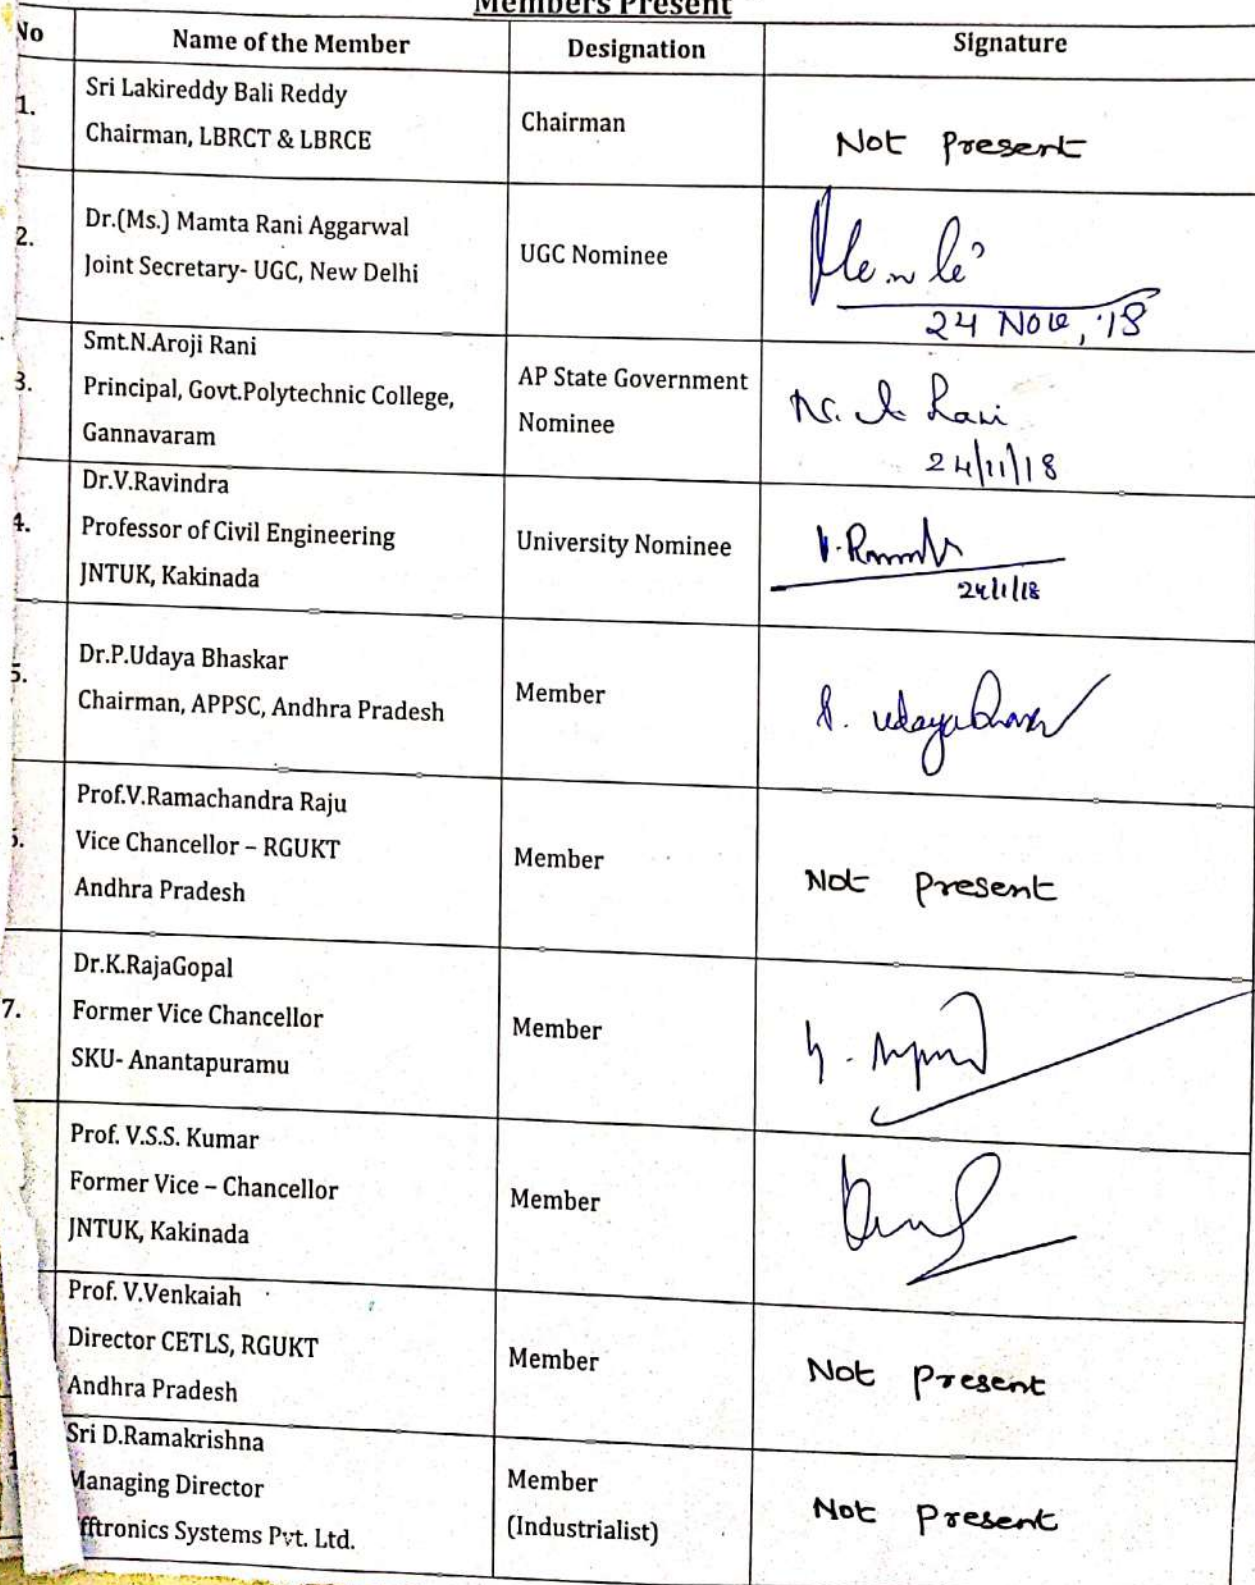 Members Present
No Name of the Member Designation Signature
1. Sri Lakireddy Bali Reddy
Chairman, LBRCT & LBRCE
Chairman
Not Present
2. Dr.(Ms.) Mamta Rani Aggarwal
Joint Secretary- UGC, New Delhi
UGC Nominee
24 Nov, '18
3. Smt.N.Aroji Rani
Principal, Govt.Polytechnic College,
Gannavaram
AP State Government
Nominee
Rani
24/11/18
4. Dr.V.Ravindra
Professor of Civil Engineering
JNTUK, Kakinada
University Nominee
24/1/18
5. Dr.P.Udaya Bhaskar
Chairman, APPSC, Andhra Pradesh
Member
Prof.V.Ramachandra Raju
Vice Chancellor – RGUKT
Andhra Pradesh
Member
Not Present
7. Dr.K.RajaGopal
Former Vice Chancellor
SKU- Anantapuramu
Member
Prof. V.S.S. Kumar
Former Vice – Chancellor
JNTUK, Kakinada
Member
Prof. V.Venkaiah
Director CETLS, RGUKT
Andhra Pradesh
Member
Not Present
Sri D.Ramakrishna
Managing Director
fftronics Systems Pvt. Ltd.
Member
(Industrialist)
Not Present